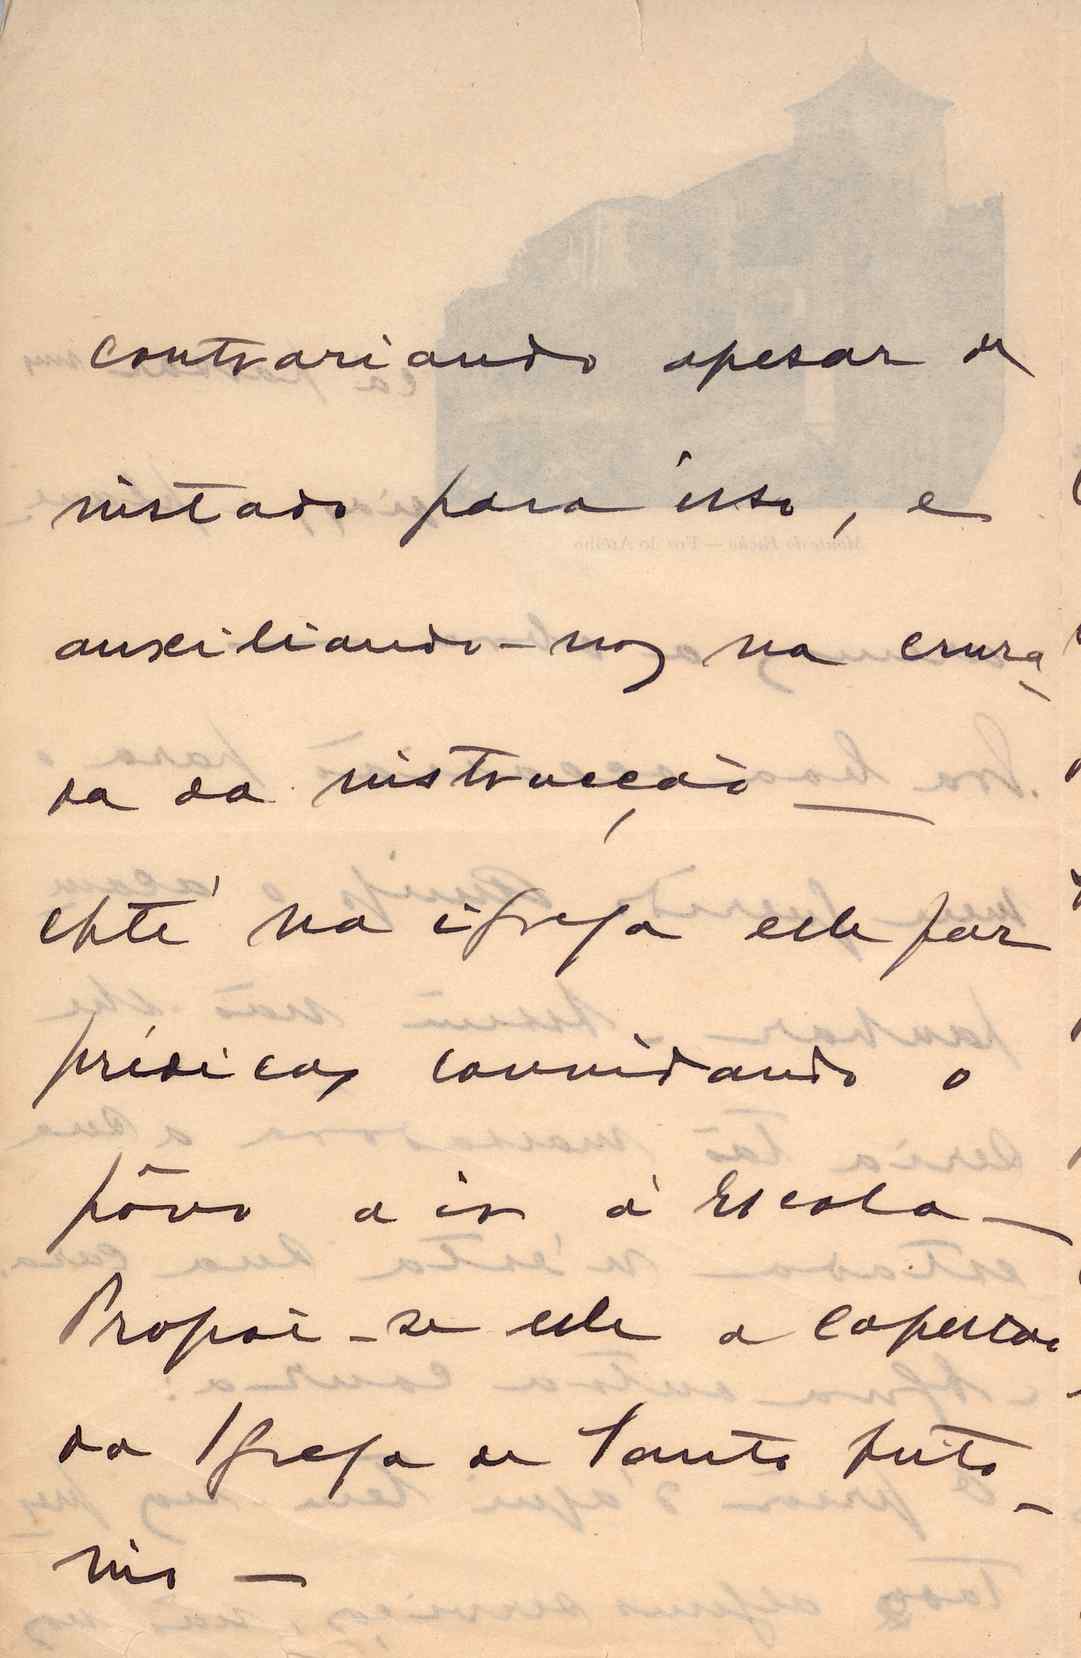 contrariando apesar de
instado para isso, e
auxiliando-nos na cruza
da da instrucção —
Até na igreja elle faz
prédicas convidando o
pôvo a ir á Escola —
Propõe-se elle a Capellão
da Igreja de Santo Anto-
nio —